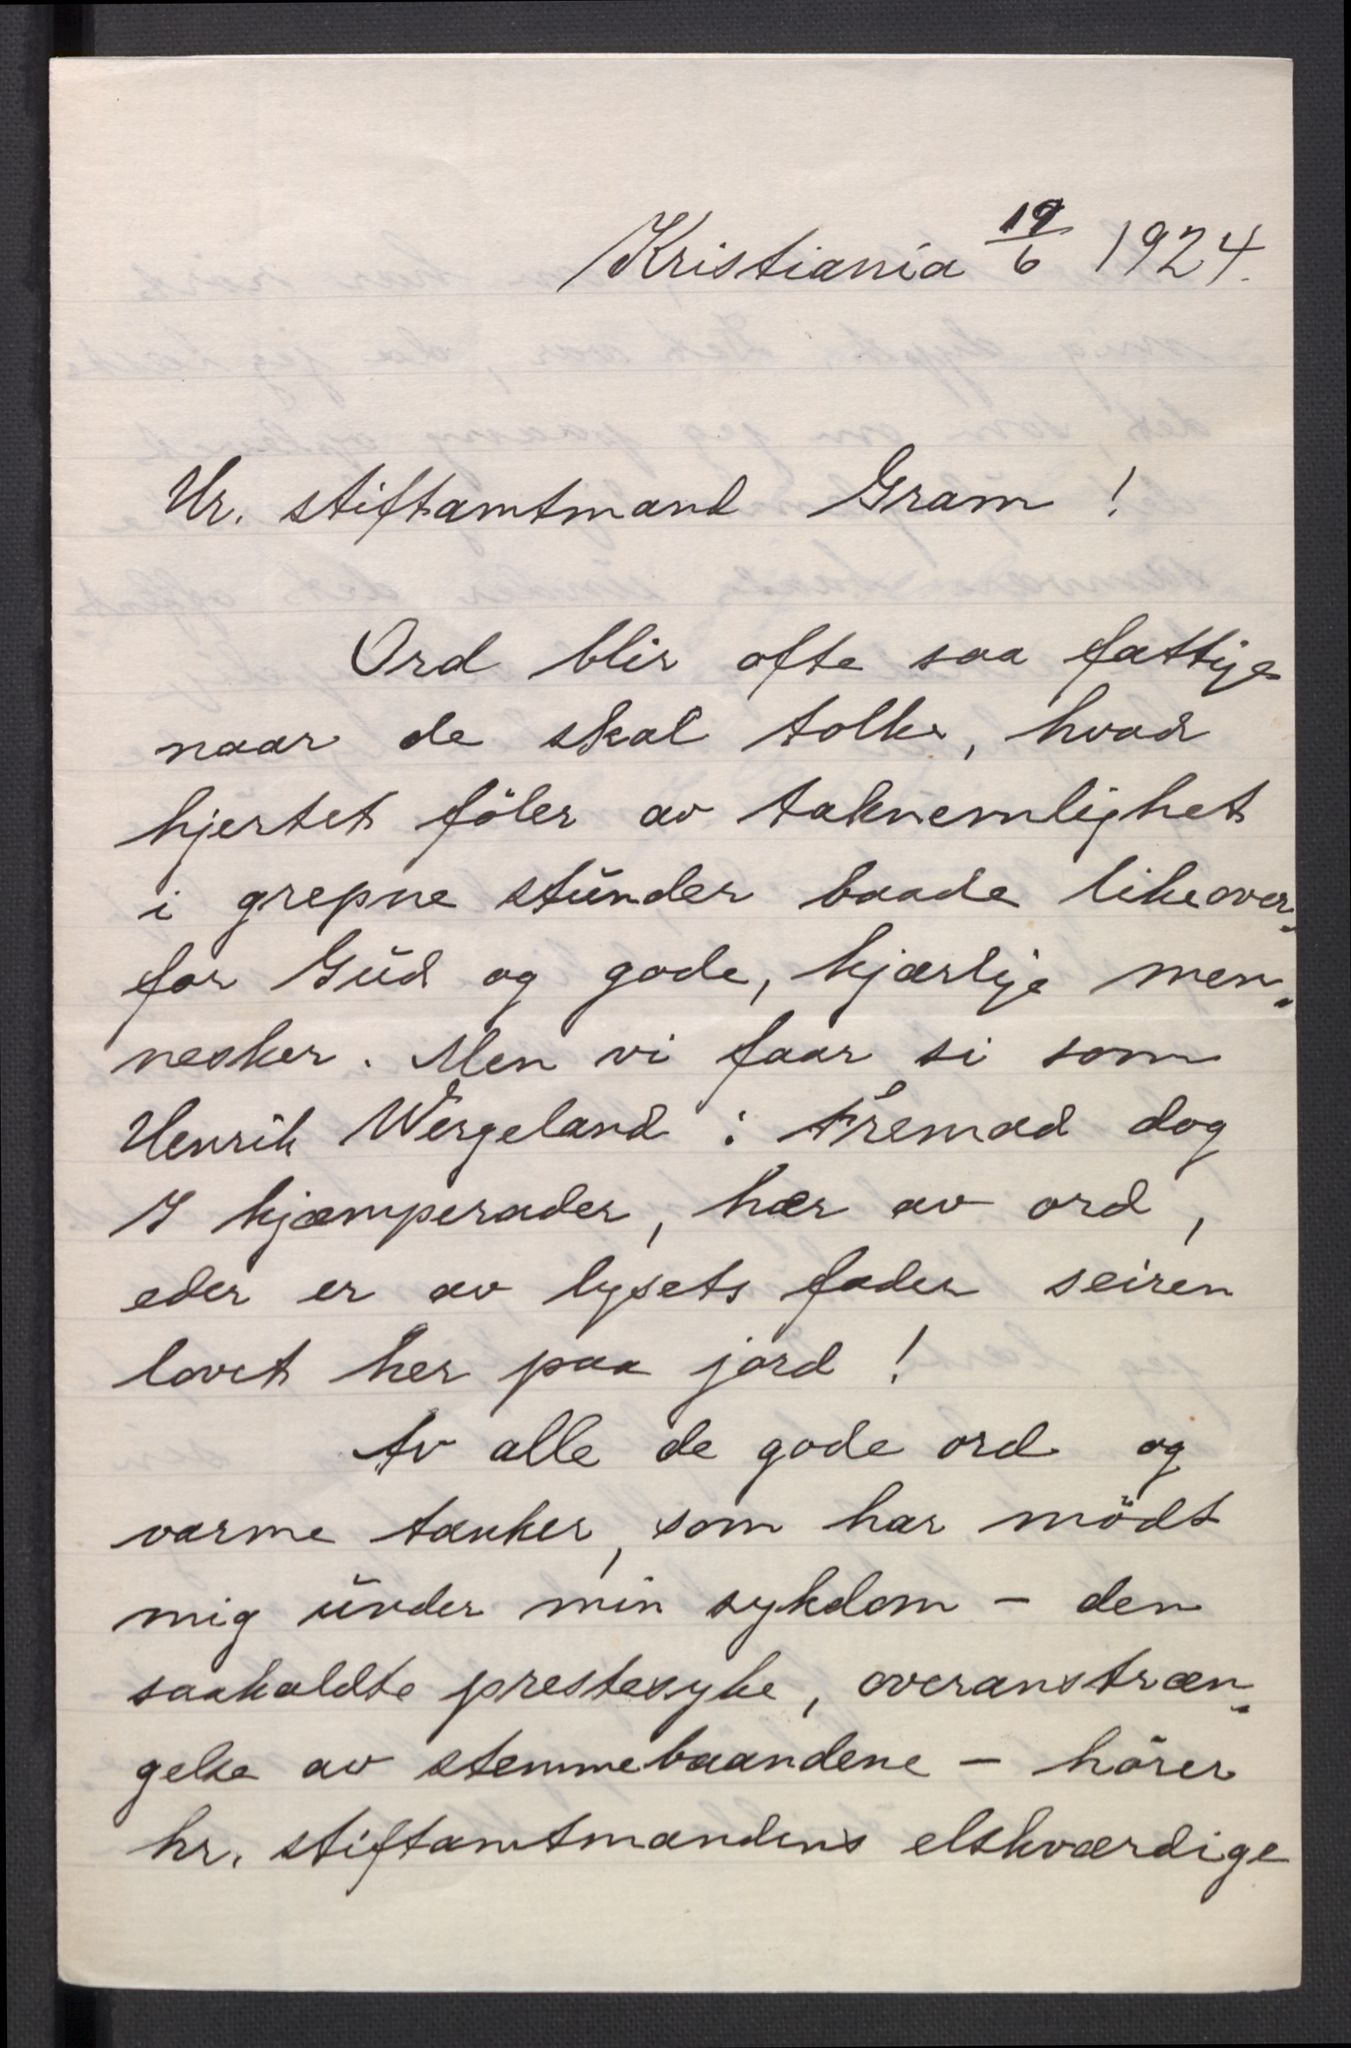 Kristiania 19/6 1924.
Hr. stiftamtmand Gram!
Ord blir ofte saa fattige
naar de skal tolke, hvad
hjertet föler av taknemlighet
i grepne stunder baade likeover-
for Gud og gode, kjærlige men-
nesker. Men vi faar si som
Henrik Wergeland: Fremad dog
I kjæmperader, hær av ord,
eder er av lysets fader seiren
lovet her paa jord!
Av alle de gode ord og
varme tanker, som har mödt
mig under min sykdom - den
saakaldte prestesyke, overanstræn-
gelse av stemmebaandene - hörer
hr. stiftamtmandens elskværdige